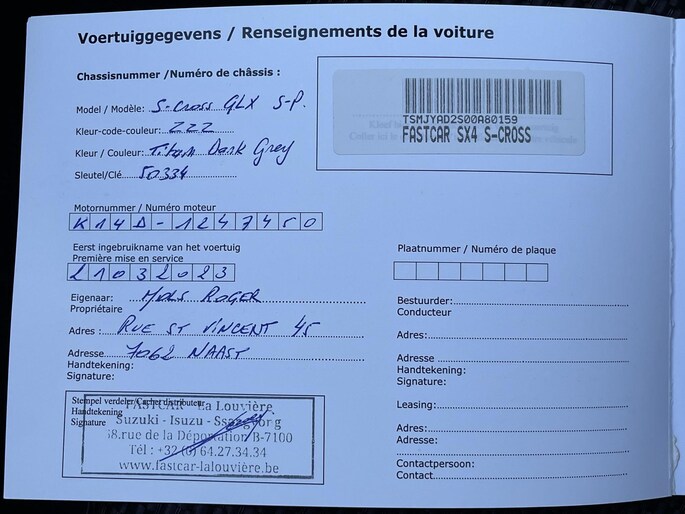 Voertuiggegevens / Renseignements de la voiture
Chassisnummer /Numéro de châssis :
TSMJYAD2S00A80159
FASTCAR SX4 S-CROSS
Model / Modèle: S-Cross GLX S-P.
Kleur-code-couleur: ZZZ
Kleur / Couleur: Titan Dark Grey
Sleutel/Clé 50334
Motornummer / Numéro moteur
K14D-1247450
Eerst ingebruikname van het voertuig
Première mise en service
21032023
Eigenaar: Mols ROGER
Propriétaire
Adres : RUE ST VINCENT 45
Adresse 7062 NAAST
Handtekening:
Signature:
Stempel verdeler/Cachet distributeur
Handtekening
Signature
FASTCAR - La Louvière
Suzuki - Isuzu - Ssangyong
58.rue de la Déportation B-7100
Tél : +32 (0) 64.27.34.34
www.fastcar-lalouvière.be
Plaatnummer / Numéro de plaque
Bestuurder:
Conducteur
Adres:
Adresse
Handtekening:
Signature:
Leasing:
Adres:
Adresse:
Contactpersoon:
Contact